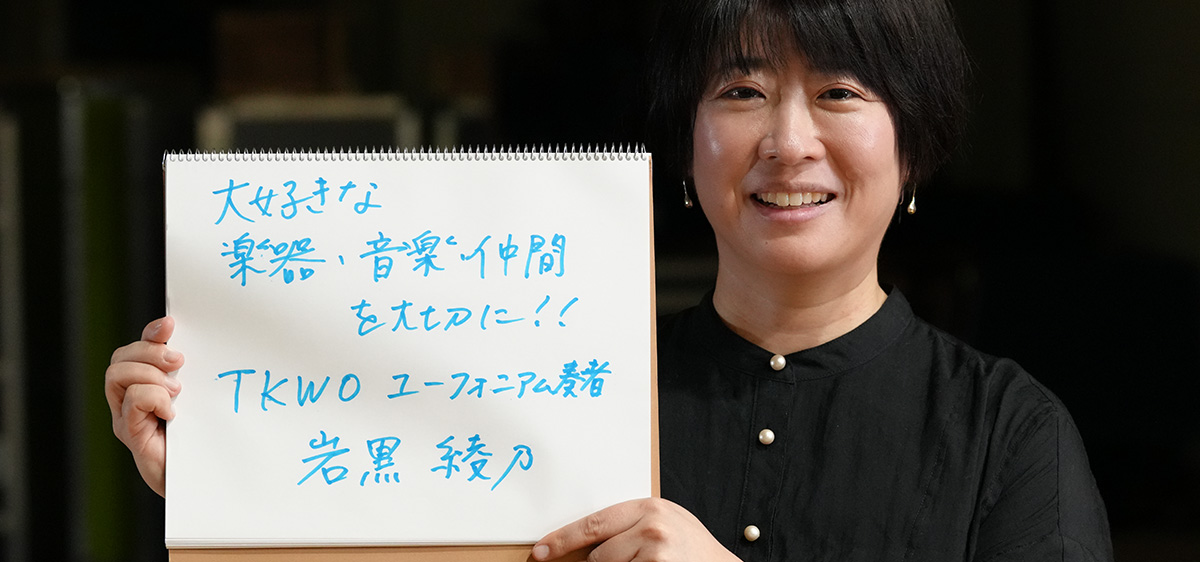 大好きな
楽器、音楽、仲間
を大切に!!
TKWO ユーフォニアム奏者
岩黒 綾乃